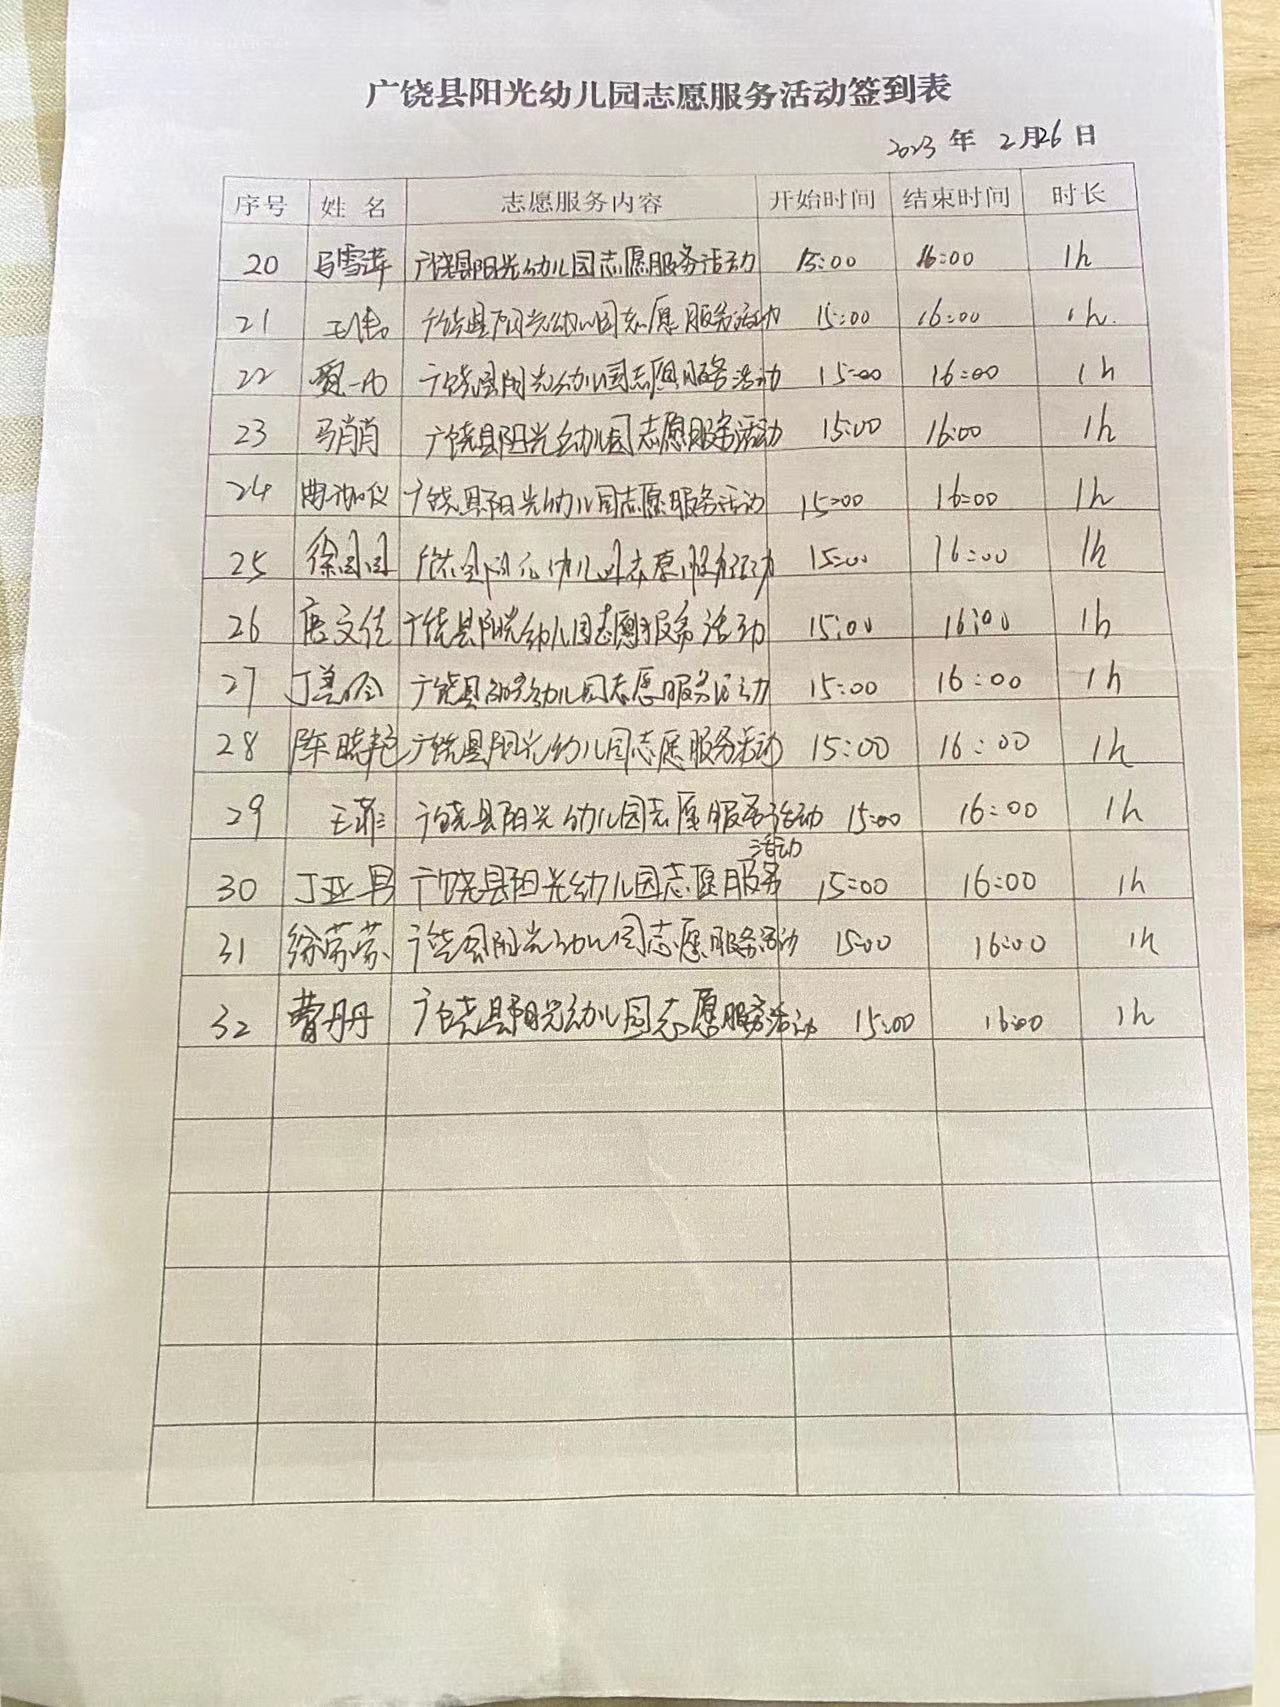 广饶县阳光幼儿园志愿服务活动签到表
2023 年 2月26日
序号 姓 名 志愿服务内容 开始时间 结束时间 时长
20 马雪萍 广饶县阳光幼儿园志愿服务活动 15:00 16:00 1h
21 王伟 广饶县阳光幼儿园志愿服务活动 15:00 16:00 1h.
22 一 广饶县阳光幼儿园志愿服务活动 15:00 16:00 1h
23 马肖肖 广饶县阳光幼儿园志愿服务活动 15:00 16:00 1h
24 仪 广饶县阳光幼儿园志愿服务活动 15:00 16:00 1h
25 徐国国 广饶县阳光幼儿园志愿服务活动 15:00 16:00 1h
26 唐文佳 广饶县阳光幼儿园志愿服务活动 15:00 16:00 1h
27 丁 广饶县阳光幼儿园志愿服务活动 15:00 16:00 1h
28 陈晓艳 广饶县阳光幼儿园志愿服务活动 15:00 16:00 1h
29 王菲 广饶县阳光幼儿园志愿服务活动 15:00 16:00 1h
30 丁亚男 广饶县阳光幼儿园志愿服务活动 15:00 16:00 1h
31 徐芳芳 广饶县阳光幼儿园志愿服务活动 15:00 16:00 1h
32 曹丹丹 广饶县阳光幼儿园志愿服务活动 15:00 16:00 1h